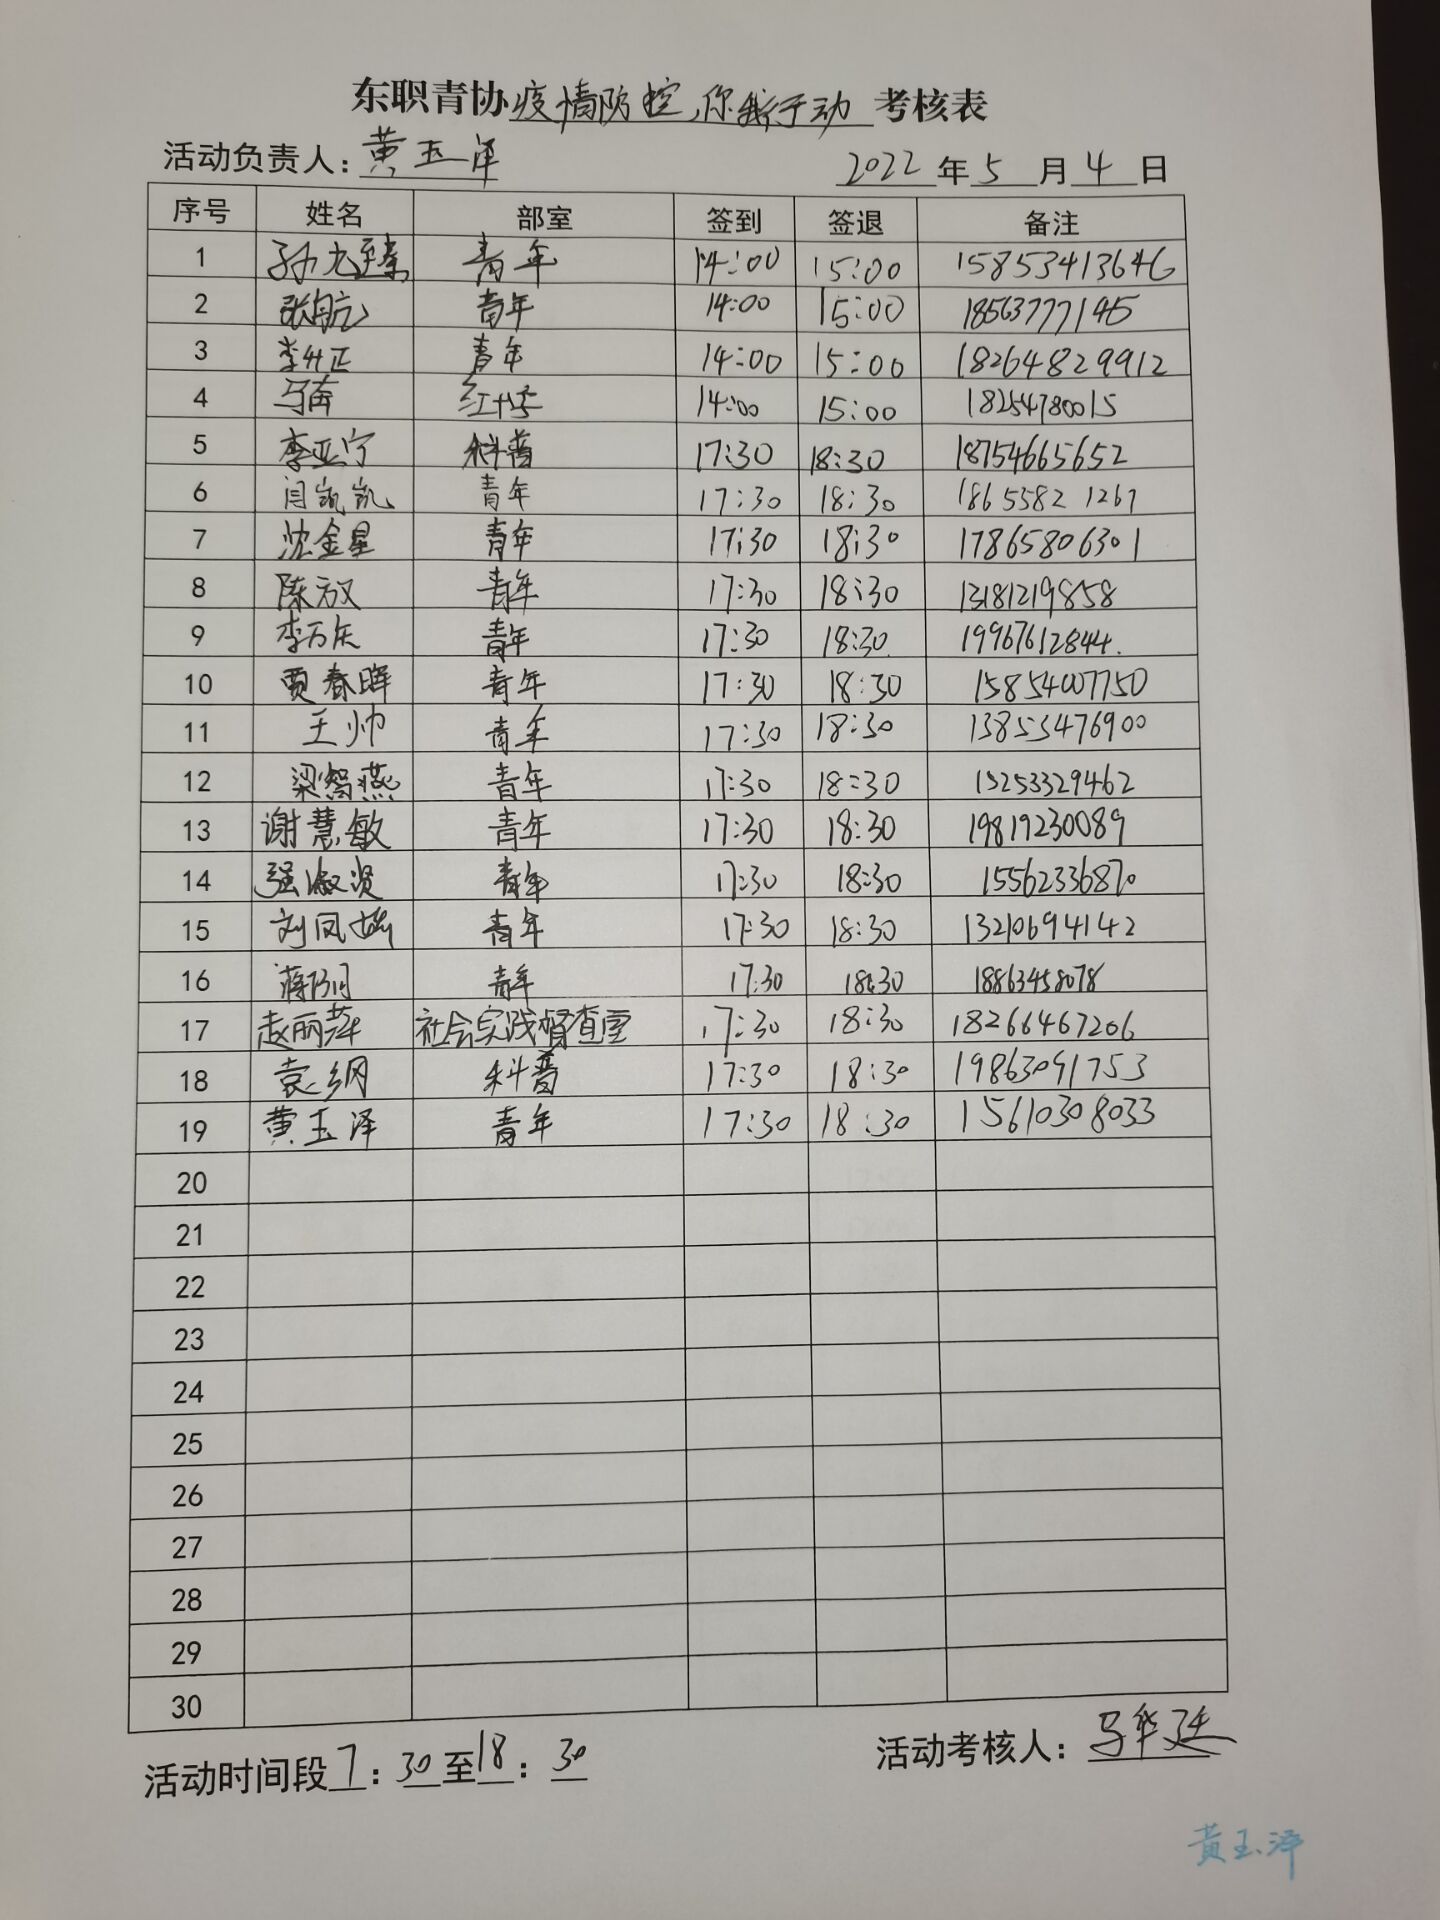 东职青协疫情防控,你我行动 考核表
活动负责人：黄玉泽 2022年5月4日
序号 姓名 部室 签到 签退 备注
1 青年 14:00 15:00 15853413646
2 张航 青年 14:00 15:00 18563777145
3 李升正 青年 14:00 15:00 18264829912
4 马奔 红十字 14:00 15:00 18254780015
5 李亚宁 科普 17:30 18:30 18754665652
6 闫凯凯 青年 17:30 18:30 18655821267
7 沈金星 青年 17:30 18:30 17865806301
8 陈放 青年 17:30 18:30 13181219858
9 李万庆 青年 17:30 18:30 19967612844.
10 贾春晖 青年 17:30 18:30 15854007750
11 王帅 青年 17:30 18:30 13853476900
12 梁智燕 青年 17:30 18:30 15253329462
13 谢慧敏 青年 17:30 18:30 19819230089
14 强淑贤 青年 17:30 18:30 15562336870
15 青年 17:30 18:30 13210694142
16 青年 17:30 18:30 18863458078
17 赵丽萍 社会实践督查室 17:30 18:30 18266467206
18 袁纲 科普 17:30 18:30 19863091753
19 黄玉泽 青年 17:30 18:30 15610308033
20
21
22
23
24
25
26
27
28
29
30
活动时间段7:30至18:30 活动考核人：马华廷
黄玉泽